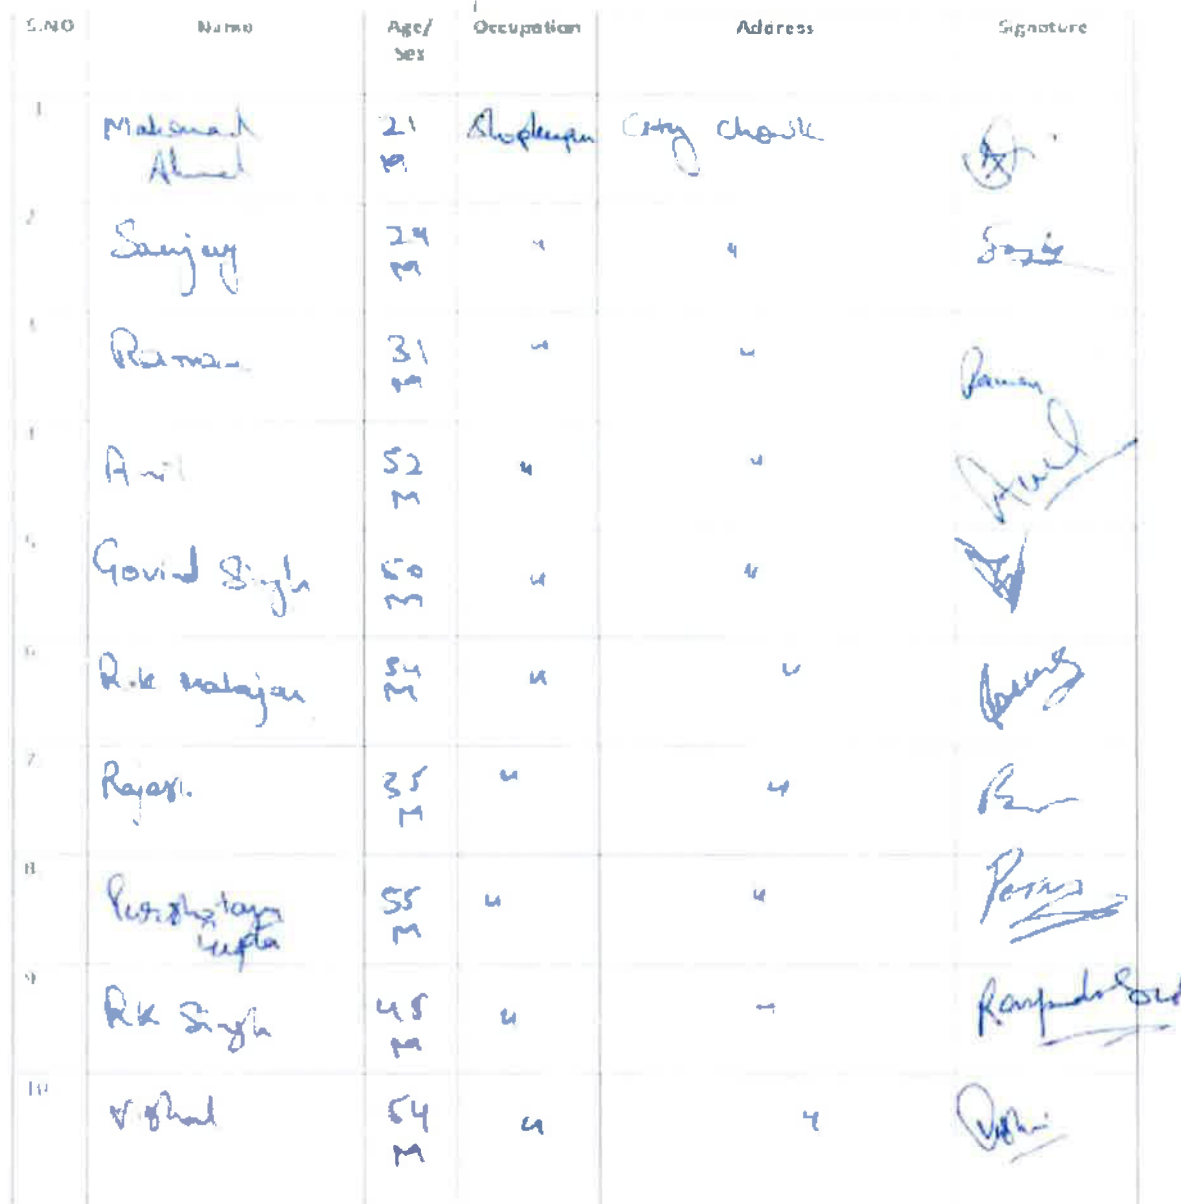 S.NO Name Age/ Occupation Address Signature
Sex
1 Mahamad 21 Shopkeeper City Chowk
Ahmed M
2 Sanjay 24 " "
M
3 Raman 31 " " Raman
M
4 Anil 52 " " Anil
M
5 Govind Singh 50 " "
M
6 R.K Mahajan 54 " "
M
7 Rajesh. 35 " "
M
8 Purshotam 55 " "
Gupta M
9 RK Singh 45 " "
M
10 Vishal 54 " "
M